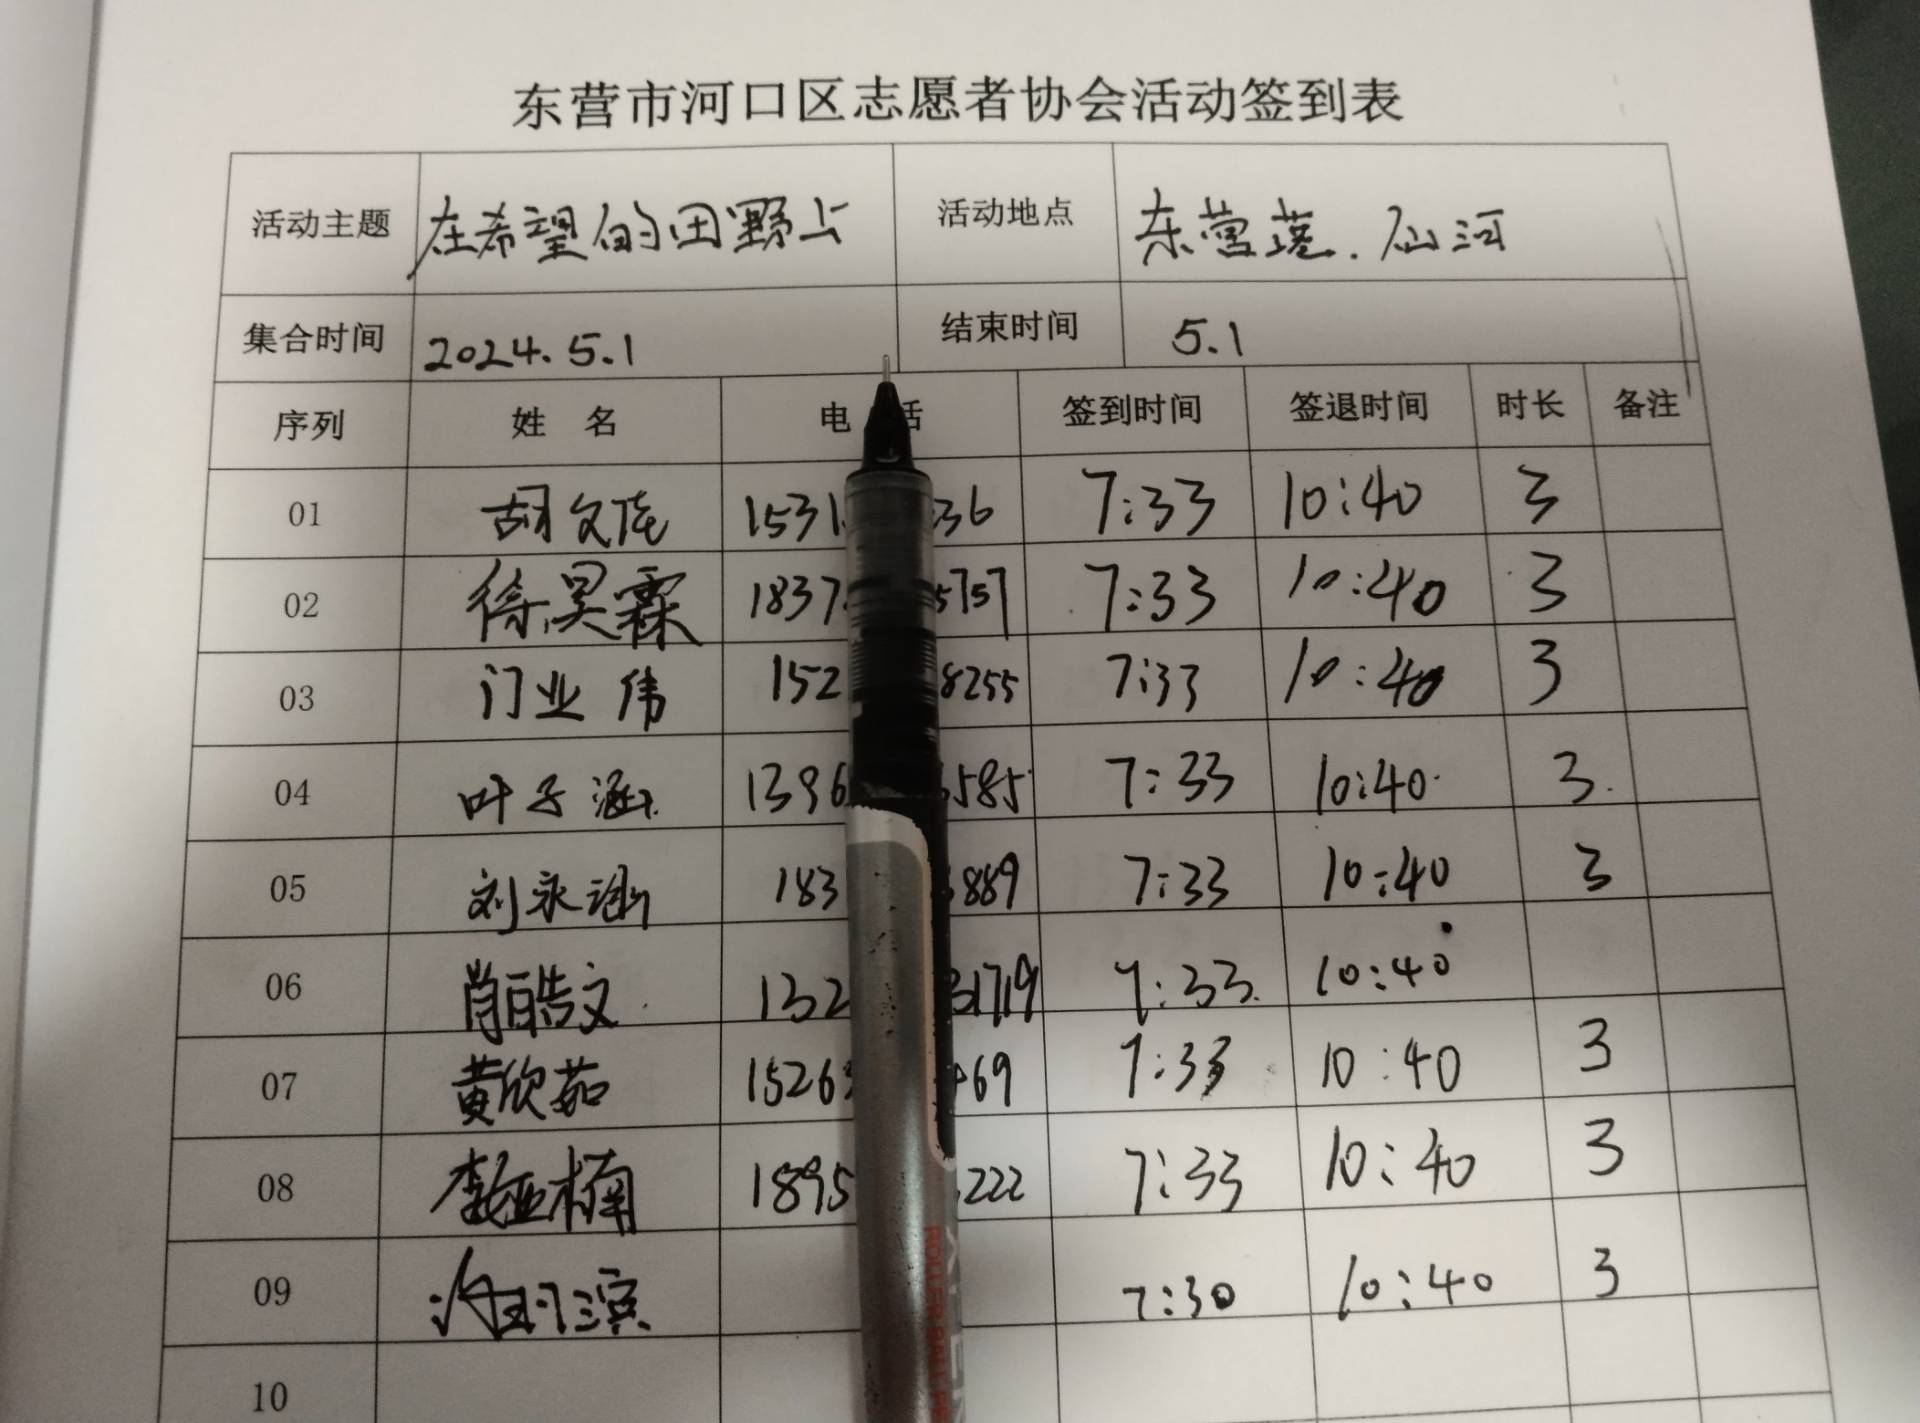 东营市河口区志愿者协会活动签到表
活动主题 在希望的田野上 活动地点 东营港.仙河
集合时间 2024.5.1 结束时间 5.1
序列 姓 名 电 话 签到时间 签退时间 时长 备注
01 胡文 1531 36 7:33 10:40 3
02 徐昊霖 1837 5757 7:33 10:40 3
03 门业伟 152 8255 7:33 10:40 3
04 叶子涵 1396 585 7:33 10:40 3
05 刘永涵 183 889 7:33 10:40 3
06 肖皓文 132 31719 7:33 10:40
07 黄欣茹 1526 69 7:33 10:40 3
08 李亚楠 1895 222 7:33 10:40 3
09 滨 7:30 10:40 3
10
ROLLER BALL P